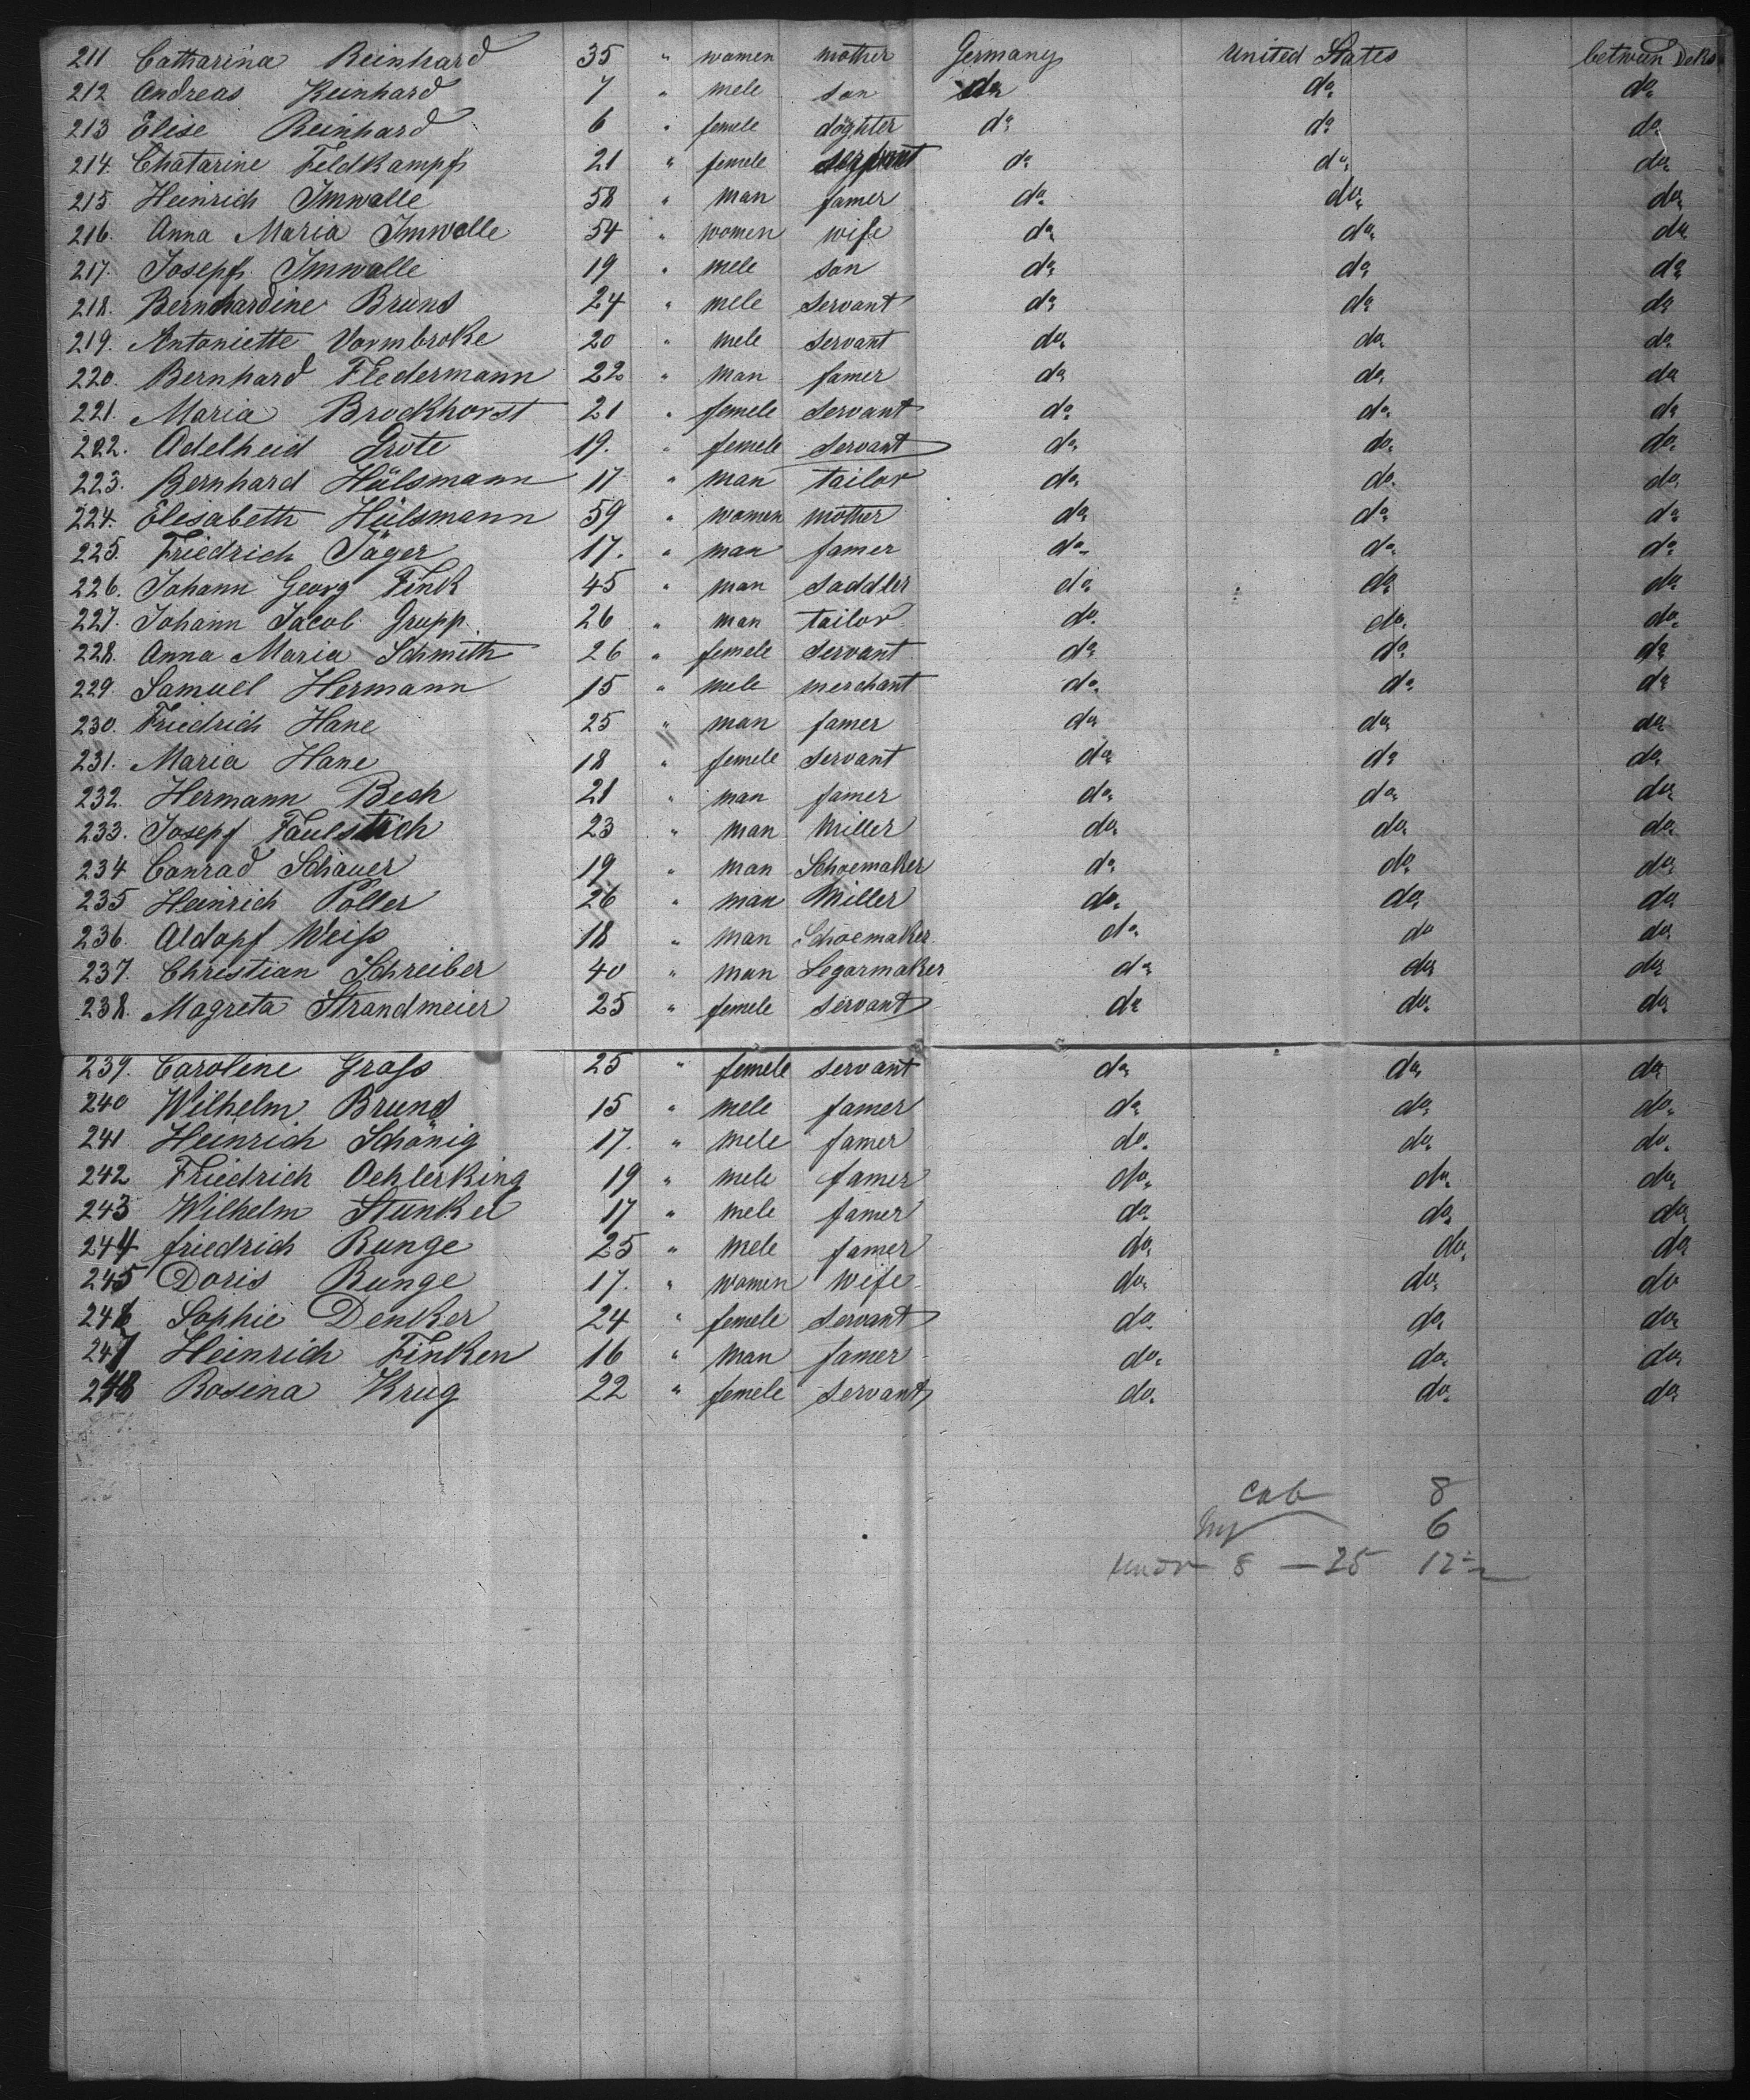 211 Catharina Reinhard 35 " women mother Germany United States between Deks
212 Andreas Reinhard 7 " mele son do do do
213 Elise Reinhard 6 " femele döghter do do do
214. Chatarine Feldkampf 21 " femele servant do do do
215. Heinrich Imwalle 58 " man famer do do do
216. Anna Maria Imwalle 54 " women wife do do do
217. Josepf Imwalle 19 " mele son do do do
218. Bernhardine Bruns 24 " mele servant do do do
219. Antoniette Vormbroke 20 " mele servant do do do
220. Bernhard Fledermann 22 " man famer do do do
221. Maria Brockhorst 21 " femele servant do do do
222. Adelheid Grote 19. " femele servant do do do
223. Bernhard Hülsmann 17 " man tailor do do do
224. Elisabeth Hülsmann 59 " women mother do do do
225. Friedrich Jäger 17. " man famer do do do
226. Johann Georg Fink 45 " man saddler do do do
227. Johann Jacob Grupp. 26 " man tailor do do do
228. Anna Maria Schmith 26 " femele servant do do do
229. Samuel Hermann 15 " mele merchant do do do
230. Friedrich Hane 25 " man famer do do do
231. Maria Hane 18 " femele servant do do do
232. Hermann Besh 21 " man famer do do do
233. Josepf Faulstich 23 " man Miller do do do
234 Conrad Schauer 19 " man Schoemaker do do do
235 Heinrich Poller 26 " man Miller do do do
236. Aldopf Weiss 18 " man Schoemaker do do do
237. Christian Schreiber 40 " man Segarmaker do do do
238. Magreta Strandmeier 25 " femele servant do do do
239. Caroline Grass 25 " femele servant do do do
240 Wilhelm Bruns 15 " mele famer do do do
241 Heinrich Schönig 17. " mele famer do do do
242 Friedrich Oehlerking 19 " mele famer do do do
243 Wilhelm Stunkel 17 " mele famer do do do
244 friedrich Runge 25 " mele famer do do do
245 Doris Runge 17. " women wife do do do
246 Sophie Denker 24 " femele servant do do do
247 Heinrich Finken 16 " man famer do do do
248 Rosina Krug 22 " femele servant do do do
cab 8
6
under 8 — 25 12